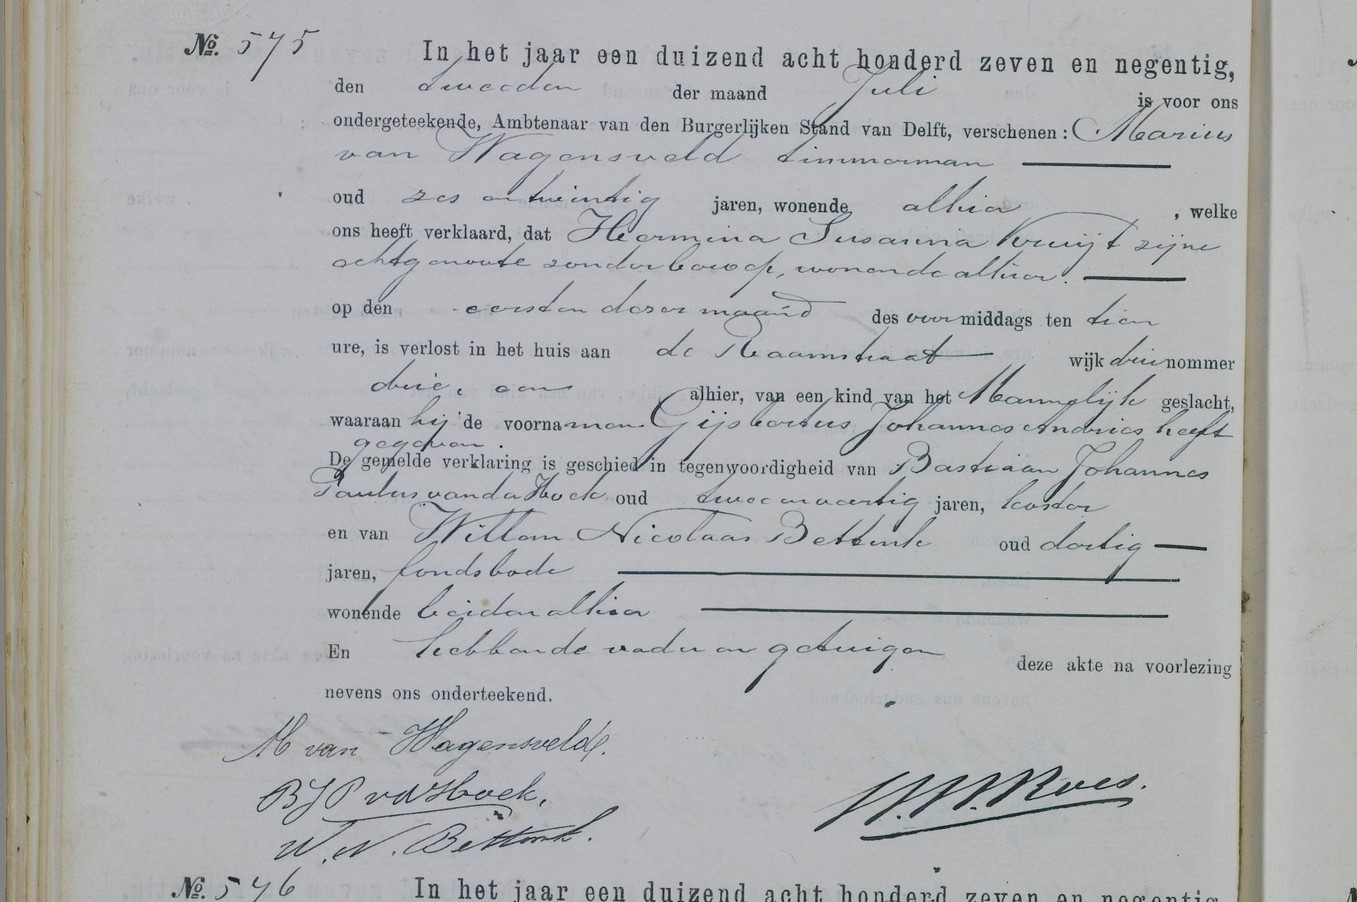 No. 575 In het jaar een duizend acht honderd zeven en negentig,
den tweeden der maand Juli is voor ons
ondergeteekende, Ambtenaar van den Burgerlijken Stand van Delft, verschenen: Marius
van Wagensveld timmerman
oud zes en twintig jaren, wonende alhier, welke
ons heeft verklaard, dat Hermina Susanna Kruijt zijne
echtgenoote zonder beroep, wonende alhier.
op den eersten dezer maand des voormiddags ten tien
ure, is verlost in het huis aan de Raamstraat wijk drie nommer
drie, een alhier, van een kind van het Mannelijk geslacht,
waaraan hij de voornamen Gijsbertus Johannes Andries heeft
gegeven.
De gemelde verklaring is geschied in tegenwoordigheid van Bastiaan Johannes
Paulus van der Hoek oud twee en veertig jaren, koster
en van Willem Nicolaas Bettink oud dertig
jaren, fondsbode
wonende beiden alhier
En hebben de vader en getuigen deze akte na voorlezing
nevens ons onderteekend.
M van Wagensveld.
BJP vd Hoek.
W. N. Bettink.
No. 576 In het jaar een duizend acht honderd zeven en negentig